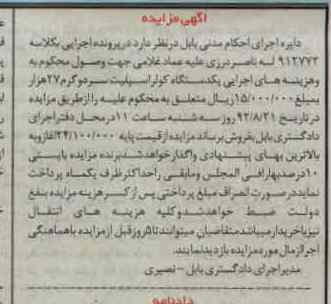 آگهی مزایده
دایره اجرای احکام مدنی بابل درنظر دارد درپرونده اجرایی بکلاسه
۹۱۲۷۷۲ له ناصر درزی علیه عماد غلامی جهت وصول محکوم به
وهزینه های اجرایی یکدستگاه کولراسپلیت سردوگرم ۲۷هزار
بمبلغ ۱۵/۰۰۰/۰۰۰ریال متعلق به محکوم علیه را ازطریق مزایده
درتاریخ ۹۲/۸/۲۱ روز سه شنبه ساعت ۱۱ درمحل دفتراجرای
دادگستری بابل بفروش برساند مزایده ازقیمت پایه ۲۴/۱۰۰/۰۰۰اغازوبه
بالاترین بهای پیشنهادی واگذارخواهدشد.برنده مزایده بایستی
۱۰درصدبهارافی المجلس ومابقی راحداکثرظرف یکماه پرداخت
نماید درصورت انصراف مبلغ پرداختی پس از کسرهزینه مزایده بنفع
دولت ضبط خواهدشدوکلیه هزینه های انتقال
نیزباخریدارمیباشدمتقاضیان میتوانندتا۵روزقبل ازمزایده باهماهنگی
اجراازمال موردمزایده بازدیدنمایند.
مدیراجرای دادگستری بابل - نصیری
دادنامه